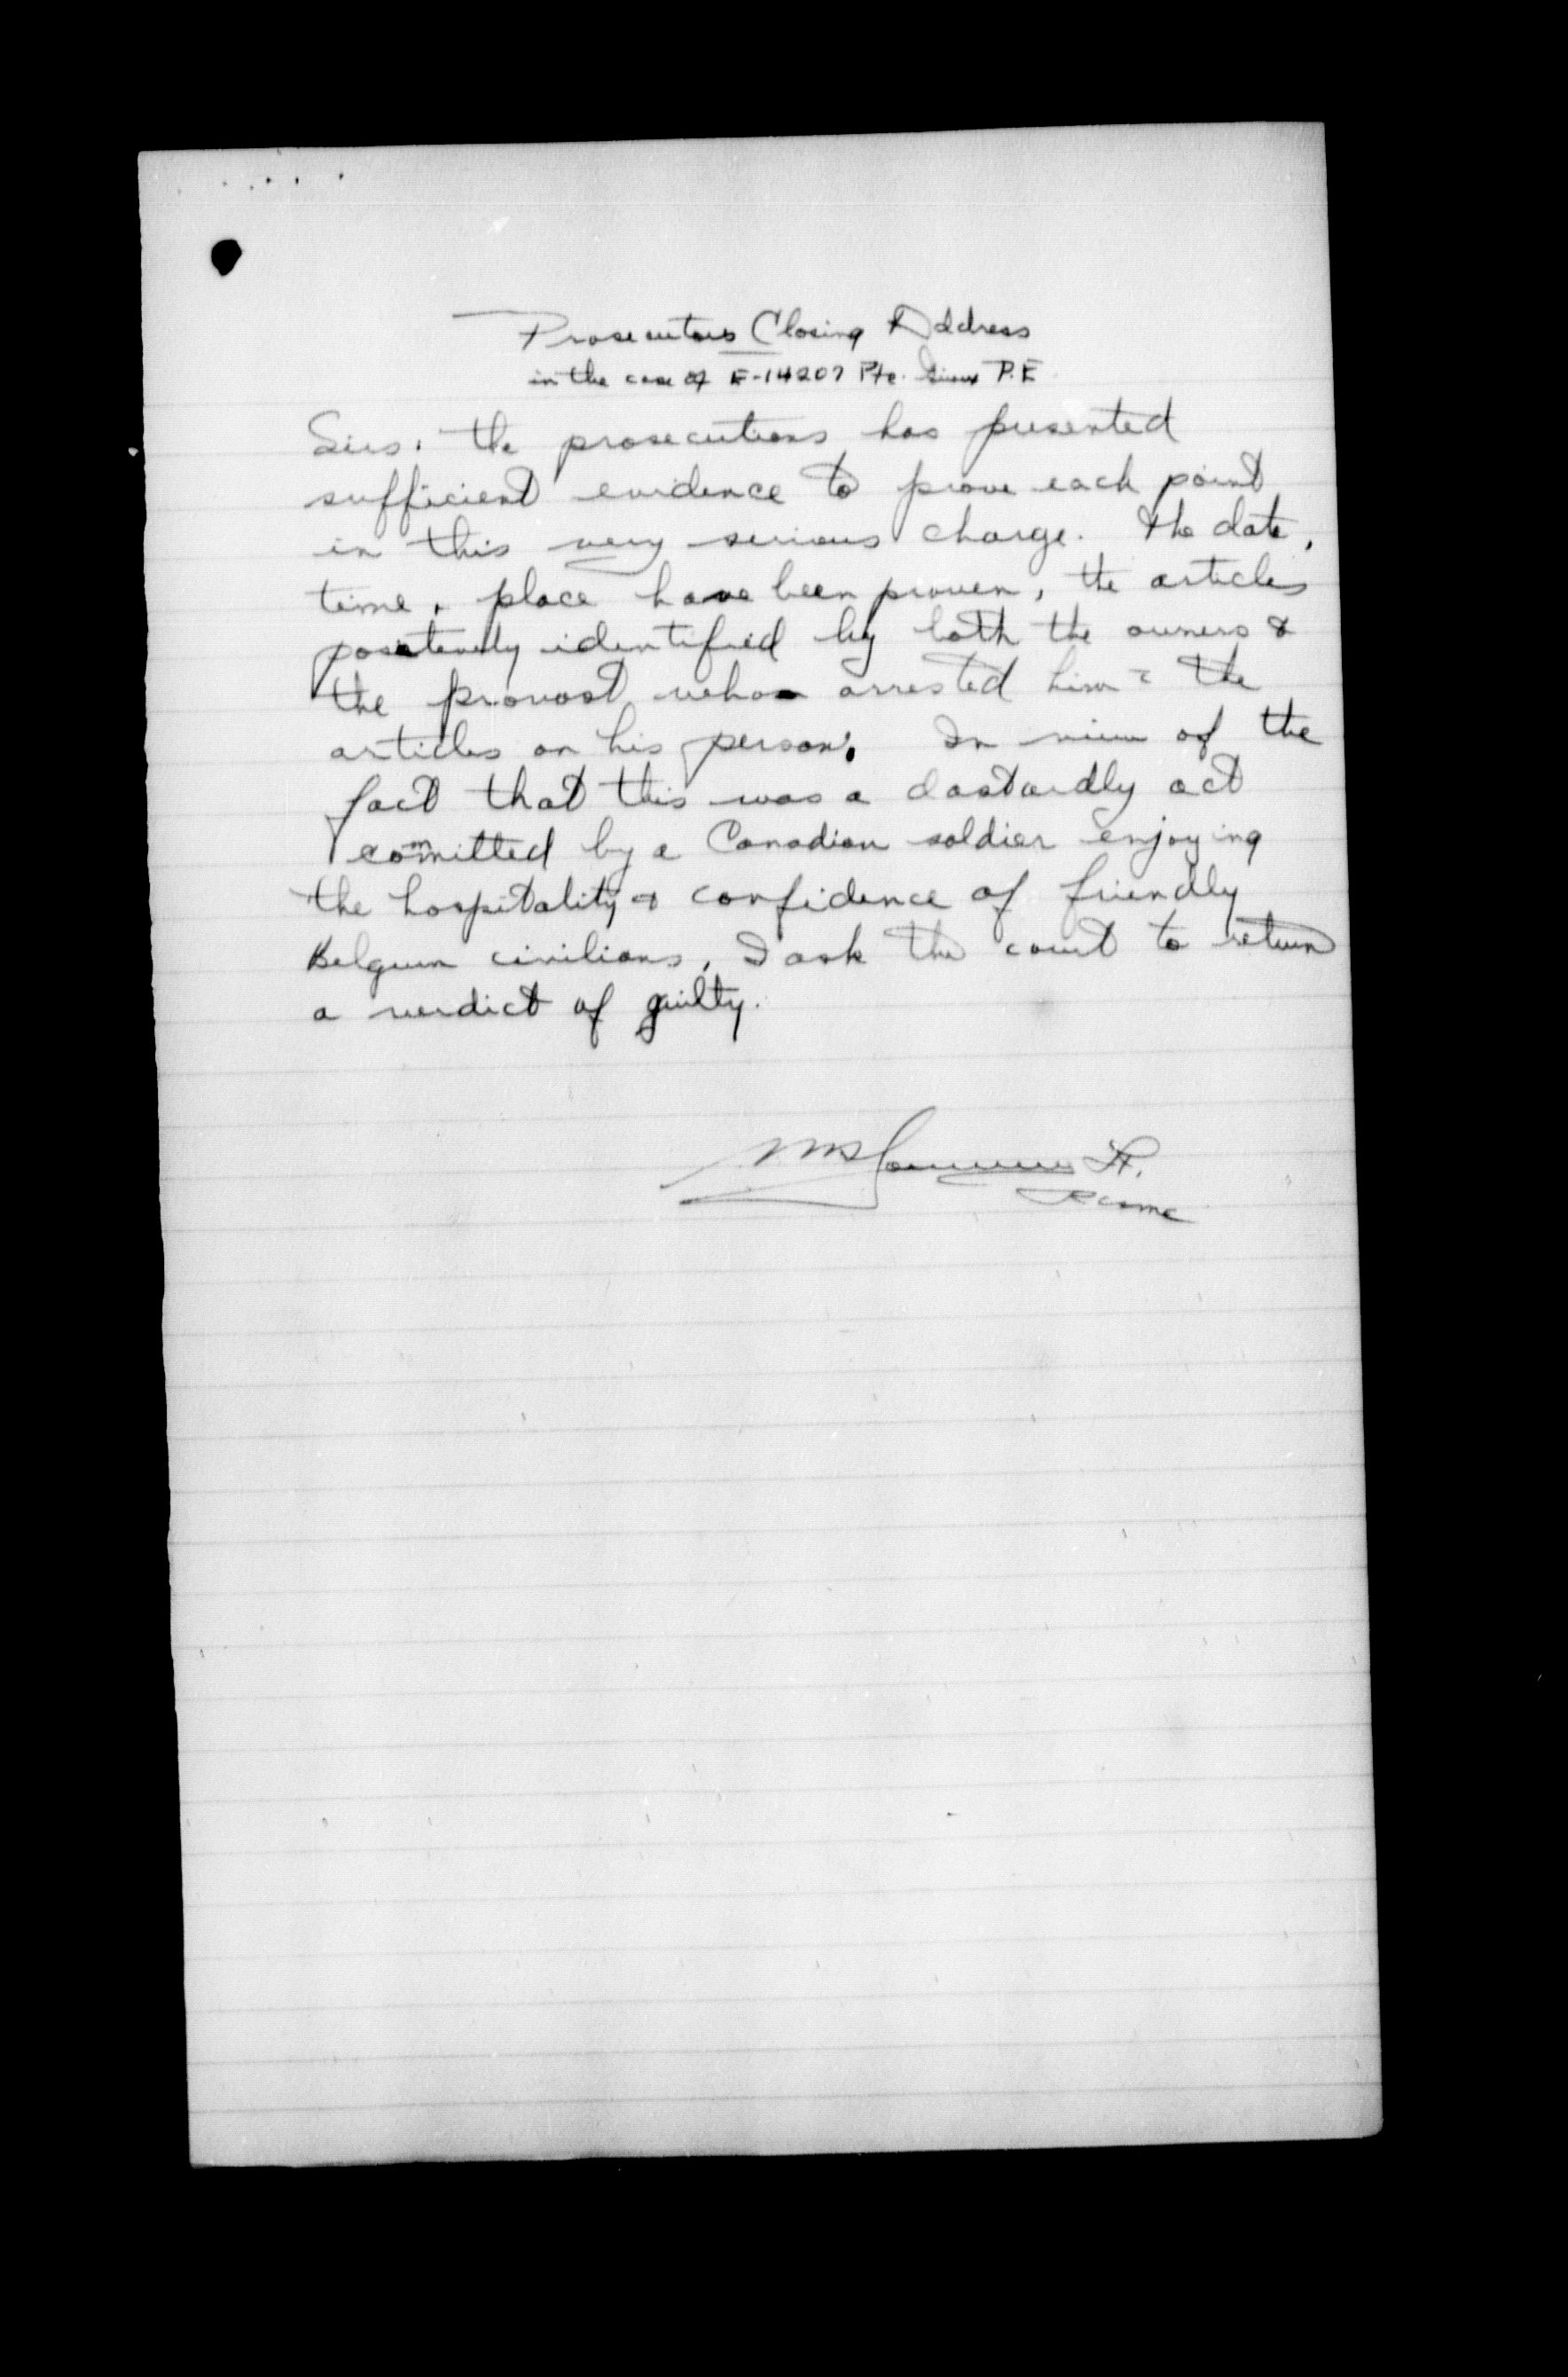 Prosecutors Closing Address
in the case of E-14207 Pte. P.E
Sirs, the prosecutions has presented
sufficient evidence to prove each point
in this very serious charge. The date,
time, place have been proven, the articles
positively identified by both the owners &
the provost who arrested him c the
articles on his person. In view of the
fact that this was a dastardly act
committed by a Canadian soldier enjoying
the hospitality & confidence of friendly
Belgium civilians, I ask the court to return
a verdict of guilty.
Lt.
RCAMC